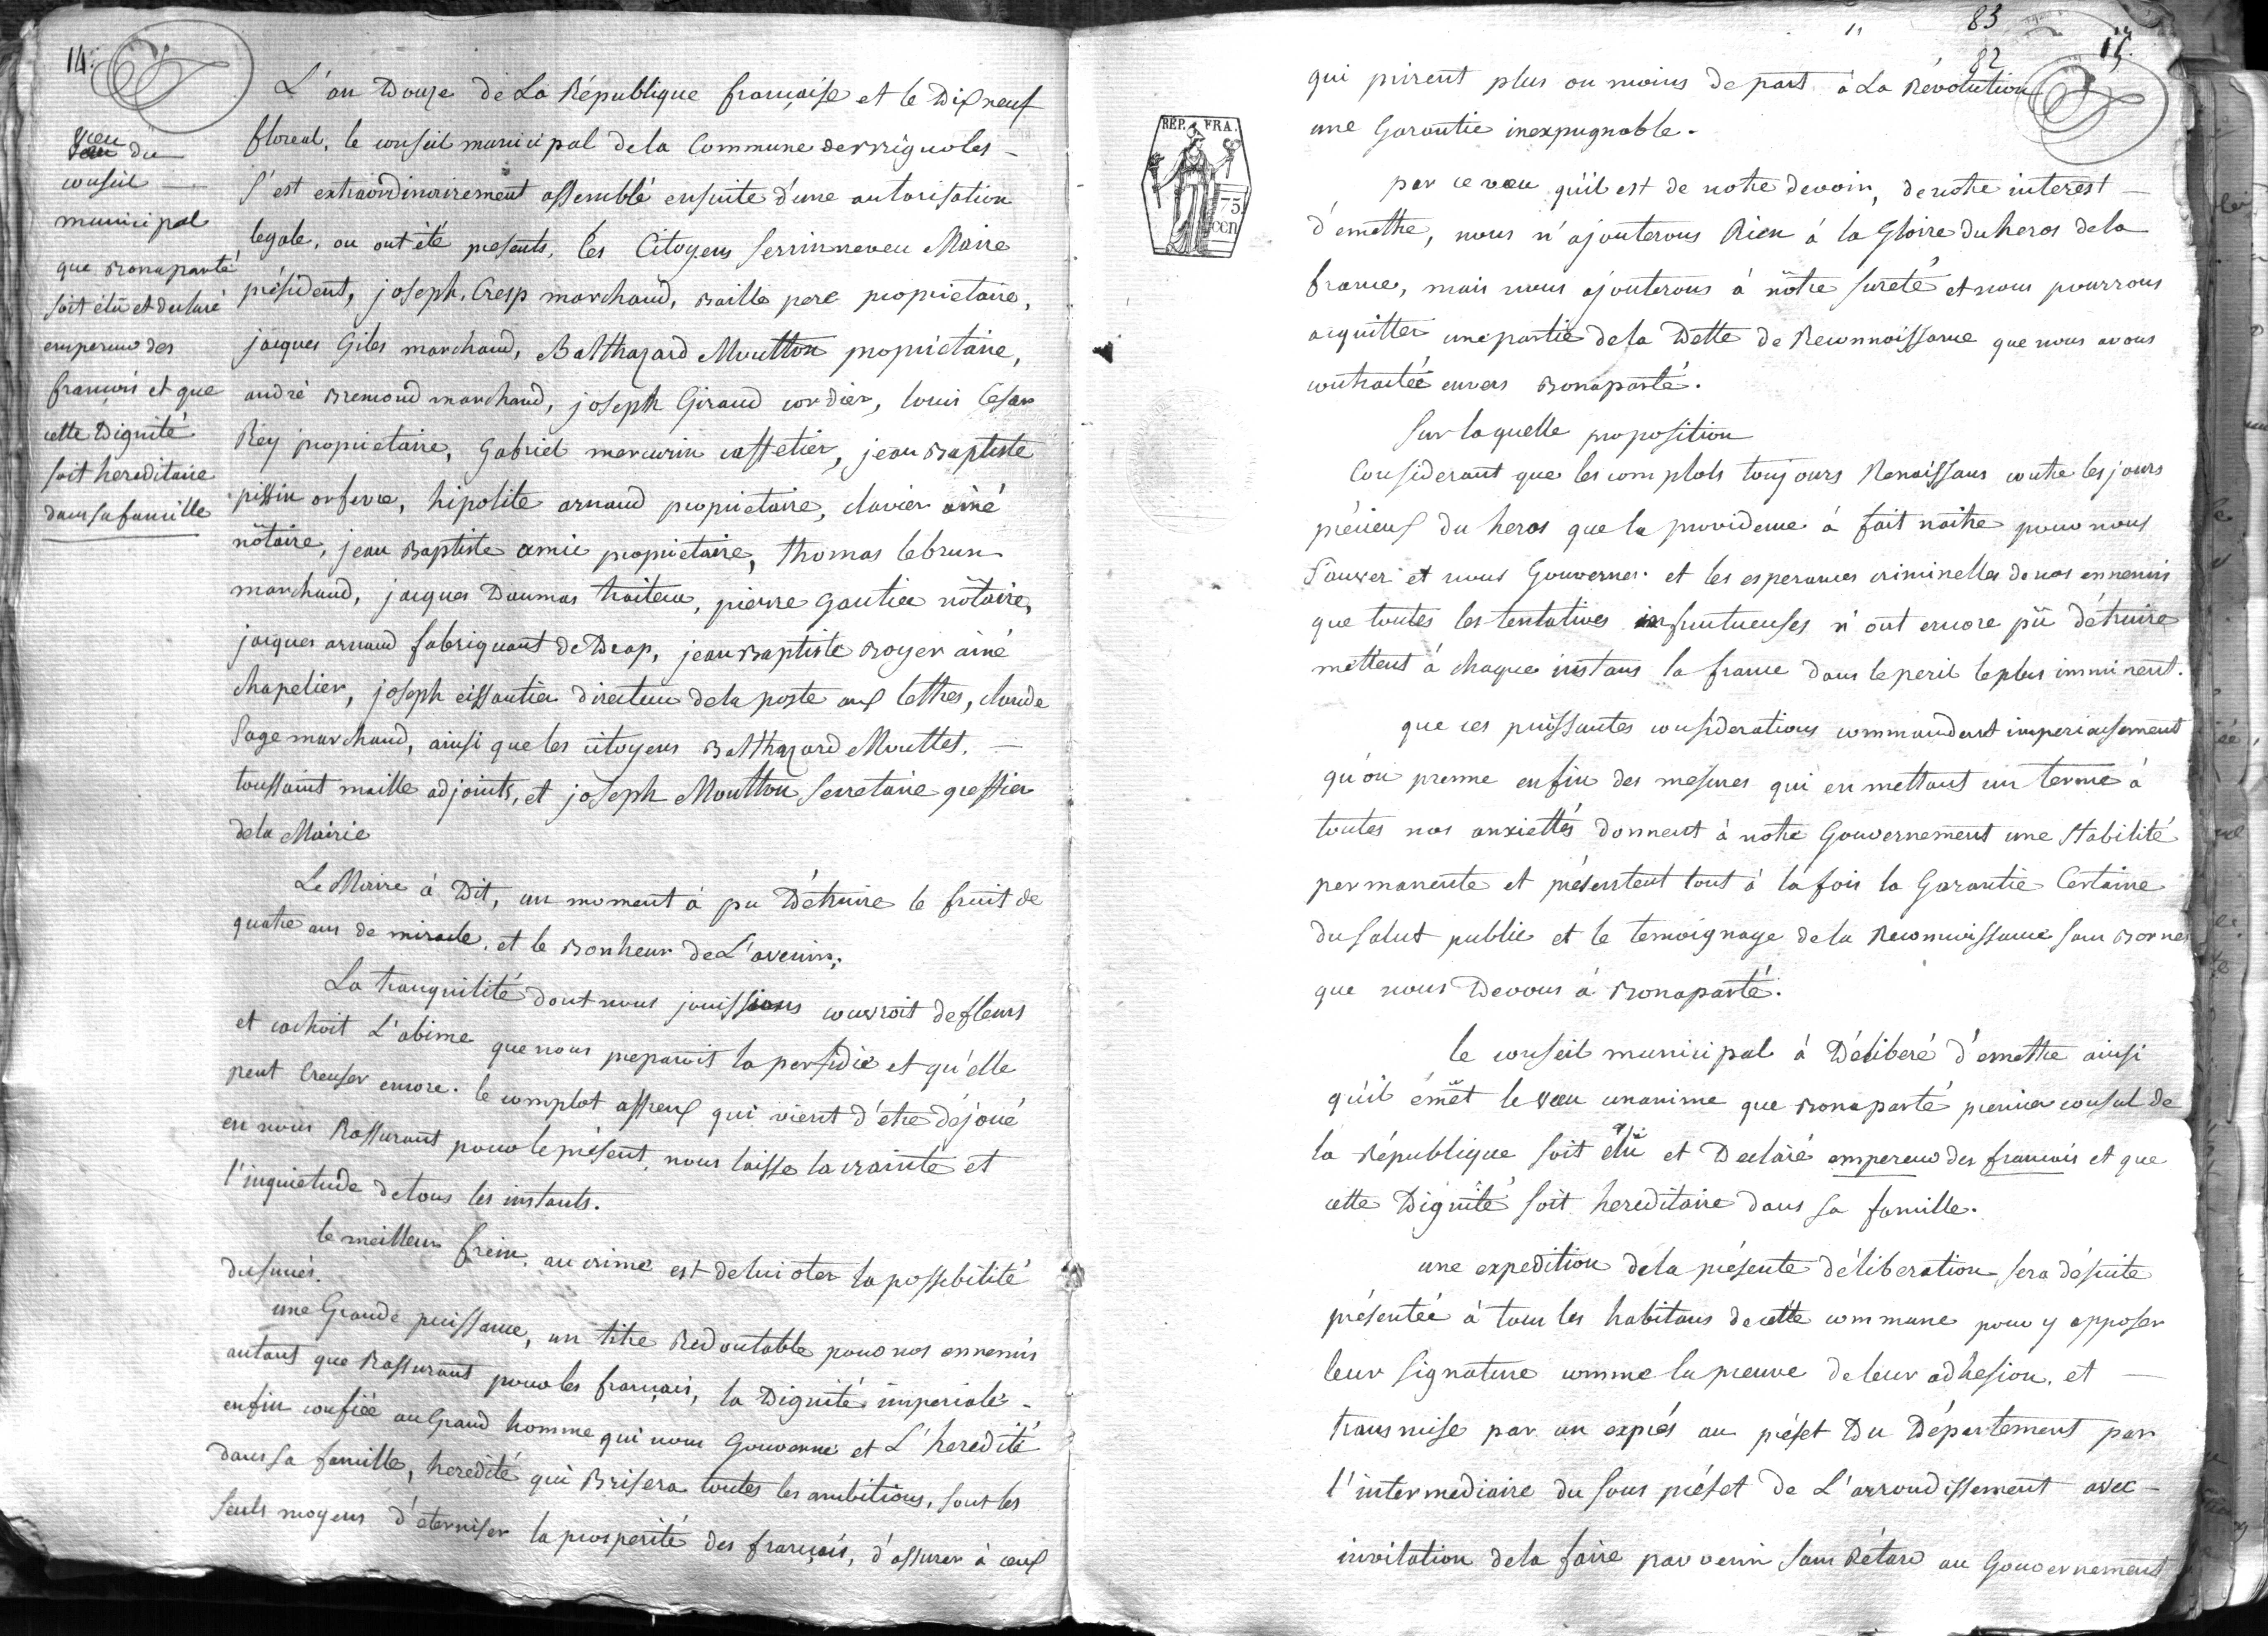 14.
vœu du
conseil
municipal
que Bonaparté
soit élu et declaré
empereur des
francois et que
cette Dignité
soit hereditaire
dans sa famille
L'an Douze de La République française et le Dix neuf
floreal, le conseil municipal de la Commune de Brignoles
s'est extraordinairement assemblé ensuite d'une autorisation
legale, ou ont été presents, les Citoyens Serrin neveu Maire
président, joseph Cresp marchand, Baille pere propietaire,
jacques Giles marchand, Balthazard Moutton propriétaire,
andré Bremond marchand, joseph Giraud cordier, louis Cesar
Rey propietaire, Gabriel mercurin caffetier, jean Baptiste
pissin orfevre, hipolite arnaud propietaire, clavier ainé
nôtaire, jean Baptiste amic propietaire, thomas lebrun
marchand, jacques Daumas traiteur, pierre Gautier nôtaire,
jacques arnaud fabriquant de Drap, jean Baptiste Boyer ainé
chapelier, joseph eissautier directeur de la poste aux lettres, claude
Sage marchand, ainsi que les citoyens Balthazard Mouttet,
toussaint maille adjoints, et joseph Moutton secretaire greffier
de la Mairie
Le Maire à Dit, un moment à pu Détruire le fruit de
quatre ans de miracle, et le Bonheur de L'avenir;
La tranquilité dont nous jouissions couvroit de fleurs
et cachoit L'abime que nous preparoit la perfidie et qu'elle
peut Creuser encore. le complot affreux qui vient d'etre déjoué
en nous Rassurant pour le présent, nous laisse la crainte et
l'inquietude de tous les instants.
le meilleur frein au crime est de lui oter la possibilité
du succés.
une Grande puissance, un titre Redoutable pour nos ennemis
autant que Rassurant pour les français, la Dignité imperiale
enfin confiée au Grand homme qui nous Gouverne et L'heredité
dans sa famille, heredité qui Brisera toutes les ambitions, sont les
seuls moyens d'éterniser la prosperité des français, d'assurer à ceux
83
82
15.
REP. FRA.
75
cen
qui prirent plus ou moins de part à La Révolution
une Garantie inexpugnable.
par ce vœu qu'il est de notre devoir, de notre interest
d'emettre, nous n'ajouterons Rien à la Gloire du heros de la
france, mais nous ajouterons à nôtre sureté et nous pourrons
acquitter une partie de la Dette de Reconnoissance que nous avons
contractée envers Bonaparté.
Sur laquelle proposition
Considerant que les complots toujours Renaissans contre les jours
précieux du heros que la providence à fait naitre pour nous
Sauver et nous Gouverner. et les esperances criminelles de nos ennemis
que toutes les tentatives infructueuses n'ont encore pü détruire
mettent à chaque instans la france dans le peril le plus imminent.
que ces puissantes considerations commandent imperieusement
qu'on prenne enfin des mesures qui en mettant un terme à
toutes nos anxiettés donnent à notre Gouvernement une stabilité
permanente et présentent tout à la fois la Garantie Certaine
du salut public et le temoignage de la Reconnoissance sans Bornes
que nous Devons à Bonaparté.
le conseil municipal à Déliberé d'emettre ainsi
qu'il émet le vœu unanime que Bonaparté premier consul de
la République soit élu et Declaré empereur des francois et que
cette Dignité soit hereditaire dans sa famille.
une expedition de la présente déliberation sera désuite
présentée à tous les habitans de cette commune pour y apposer
leur signature comme la preuve de leur adhesion, et
transmise par un exprés au préfet Du Département par
l'intermediaire du sous préfet de L'arrondissement avec
invitation de la faire parvenir sans Rétard au Gouvernement